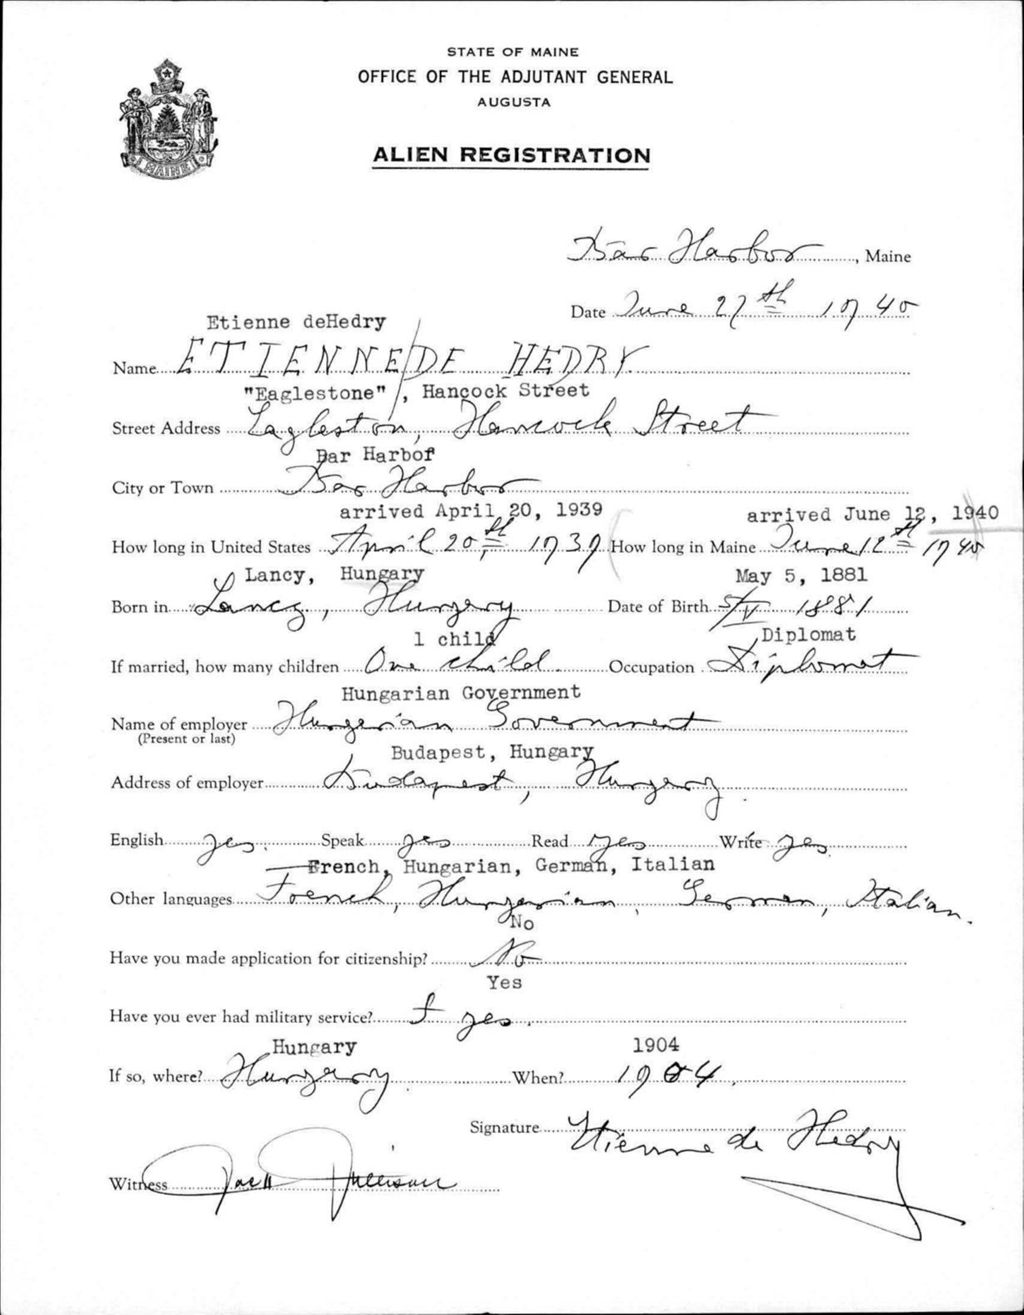 STATE OF MAINE
OFFICE OF THE ADJUTANT GENERAL
AUGUSTA
ALIEN REGISTRATION
MAINE
Bar Harbor, Maine
Date June 27th 1940
Etienne deHedry
Name ETIENNE/DE HEDRY
"Eaglestone", Hancock Street
Street Address Eagleston, Hancock Street
Bar Harbor
City or Town Bar Harbor
arrived April 20, 1939 arrived June 12, 1940
How long in United States April 20th, 1939 How long in Maine June 12th 1940
Lancy, Hungary May 5, 1881
Born in Lancz, Hungary Date of Birth 5/V 1881
1 child Diplomat
If married, how many children One child. Occupation Diplomat
Hungarian Government
Name of employer Hungarian Government
(Present or last)
Budapest, Hungary
Address of employer Budapest, Hungary.
English yes. Speak yes Read yes Write yes
French, Hungarian, German, Italian
Other languages French, Hungarian, German, Italian.
No
Have you made application for citizenship? No
Yes
Have you ever had military service? yes.
Hungary 1904
If so, where? Hungary When? 1904.
Signature Etienne de Hedry
Witness Jack